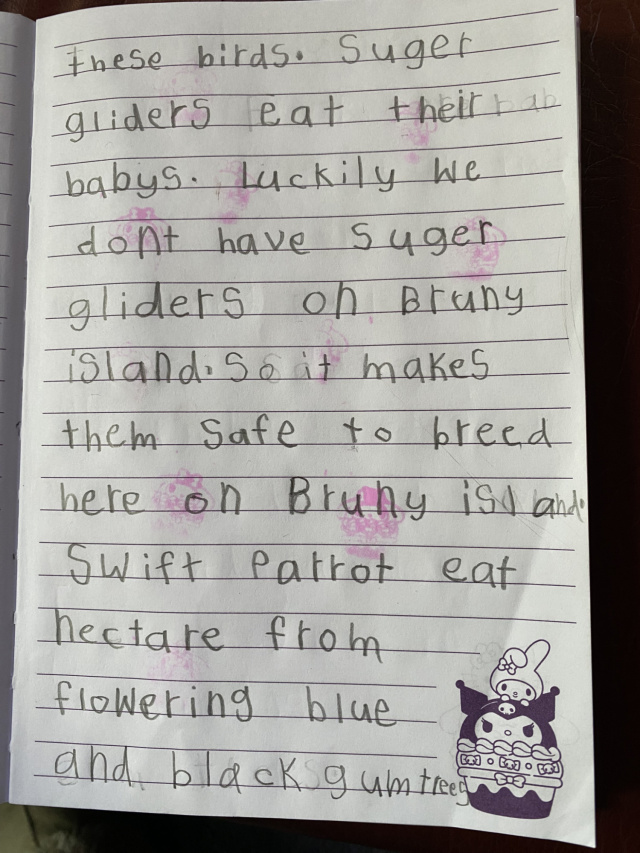 these birds. Suger
gliders eat their
babys. Luckily we
dont have suger
gliders on Bruny
island. So it makes
them safe to breed
here on Bruny island.
Swift Parrot eat
hectare from
flowering blue
and black gum trees